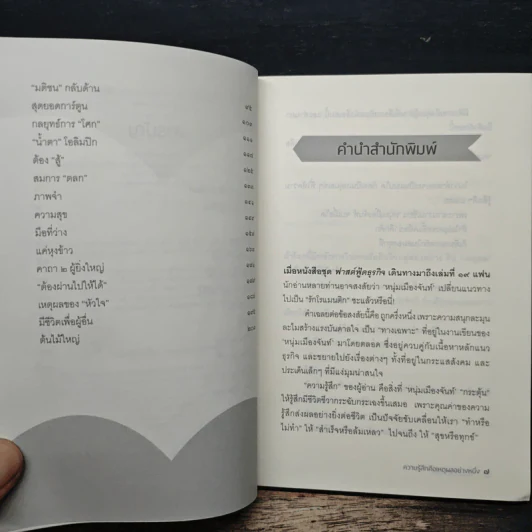 "มติชน" กลับด้าน
สุดยอดการ์ตูน
กลยุทธ์การ "โศก"
"น้ำตา" โอลิมปิก
ต้อง "สู้"
สมการ "ตลก"
ภาพจำ
ความสุข
มือที่ว่าง
แค่หุงข้าว
คาถา ๒ ผู้ยิ่งใหญ่
"ต้องผ่านไปให้ได้"
เหตุผลของ "หัวใจ"
มีชีวิตเพื่อผู้อื่น
ต้นไม้ใหญ่
คำนำสำนักพิมพ์
เมื่อหนังสือชุด ฟาสต์ฟู้ดธุรกิจ เดินทางมาถึงเล่มที่ ๑๙ แฟน
นักอ่านหลายท่านอาจสงสัยว่า 'หนุ่มเมืองจันท์' เปลี่ยนแนวทาง
ไปเป็น 'รักโรแมนติก' ซะแล้วหรือนี่!
คำเฉลยต่อข้อสงสัยนี้คือ ถูกครึ่งหนึ่ง เพราะความสนุกละมุน
ละไมสร้างแรงบันดาลใจ เป็น "ทางเฉพาะ" ที่อยู่ในงานเขียนของ
'หนุ่มเมืองจันท์' มาโดยตลอด ซึ่งอยู่ควบคู่กับเนื้อหาหลักแนว
ธุรกิจ และขยายไปยังเรื่องต่างๆ ทั้งที่อยู่ในกระแสสังคม และ
ประเด็นเล็กๆ ที่มีแง่มุมน่าสนใจ
"ความรู้สึก" ของผู้อ่าน คือสิ่งที่ 'หนุ่มเมืองจันท์' "กระตุ้น"
ให้รู้สึกมีชีวิตชีวากระฉับกระเฉงขึ้นเสมอ เพราะคุณค่าของความ
รู้สึกส่งผลอย่างยิ่งต่อชีวิต เป็นปัจจัยขับเคลื่อนให้เรา "ทำหรือ
ไม่ทำ" ให้ "สำเร็จหรือล้มเหลว" ไปจนถึง ให้ "สุขหรือทุกข์"
ความรู้สึกคือเหตุผลอย่างหนึ่ง ๗